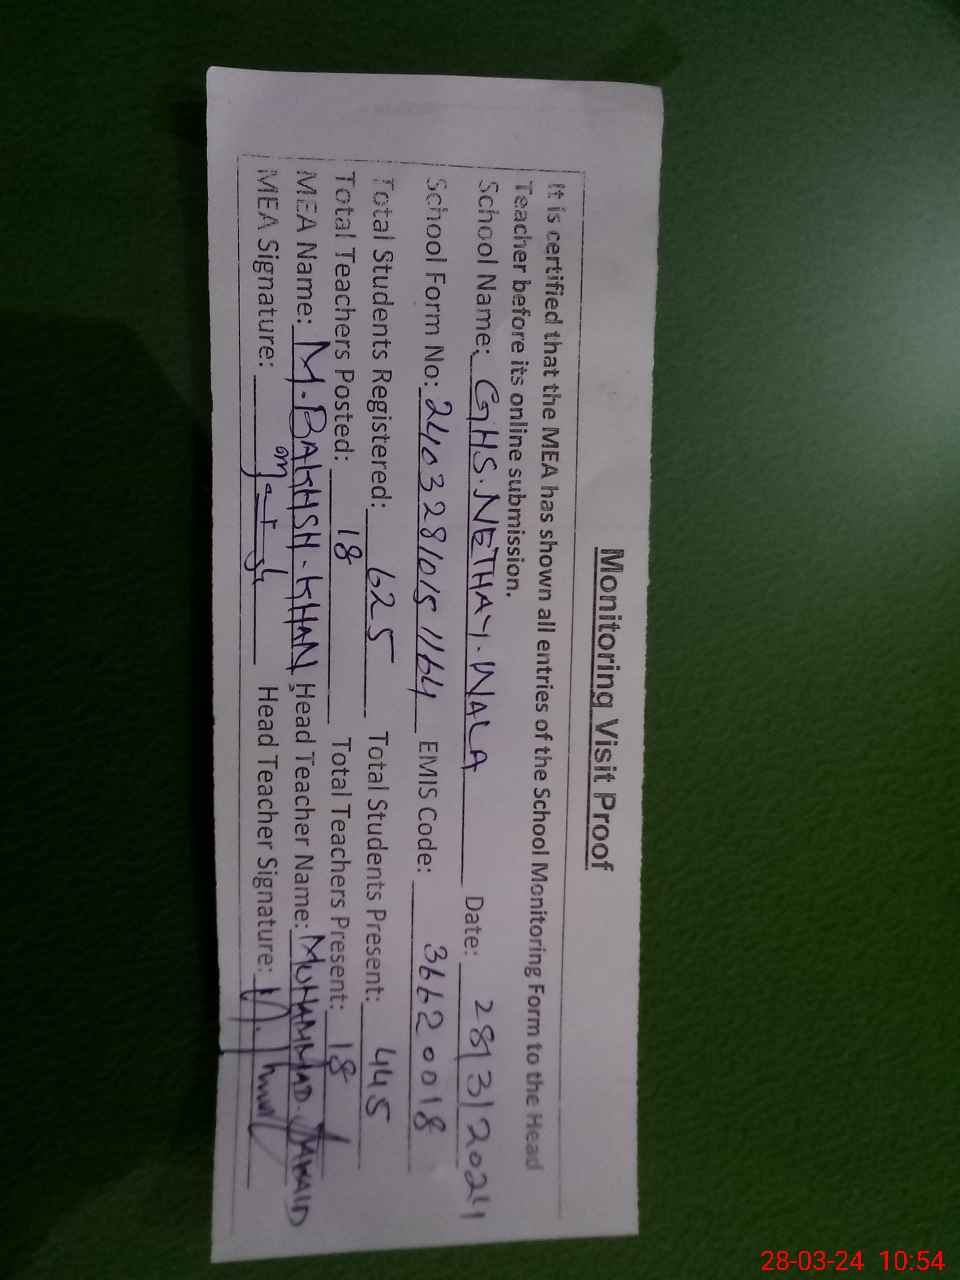 Monitoring Visit Proof
It is certified that the MEA has shown all entries of the School Monitoring Form to the Head
Teacher before its online submission.
School Name: GHS. NETHAY. WALA Date: 28/3/2024
School Form No: 2403281015 1164 EMIS Code: 36620018
Total Students Registered: 625 Total Students Present: 445
Total Teachers Posted: 18 Total Teachers Present: 18
MEA Name: M. BAKHSH. KHAN Head Teacher Name: MUHAMMAD. JAWAID
MEA Signature: Head Teacher Signature:
28-03-24 10:54